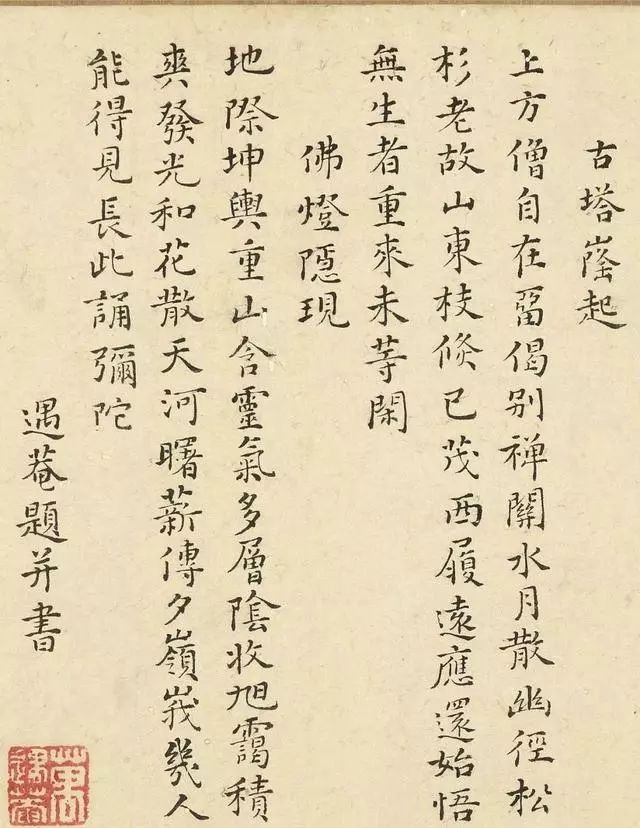 古塔窿起
上方僧自在留偈別禅關水月散幽徑松
杉老故山東枝倏已茂西履遠應還始悟
無生者重來未等閑
佛燈隱現
地際坤輿重山含靈氣多層陰收旭靄積
爽發光和花散天河曙薪傳夕嶺峩幾人
能得見長此誦彌陀
遇菴題并書